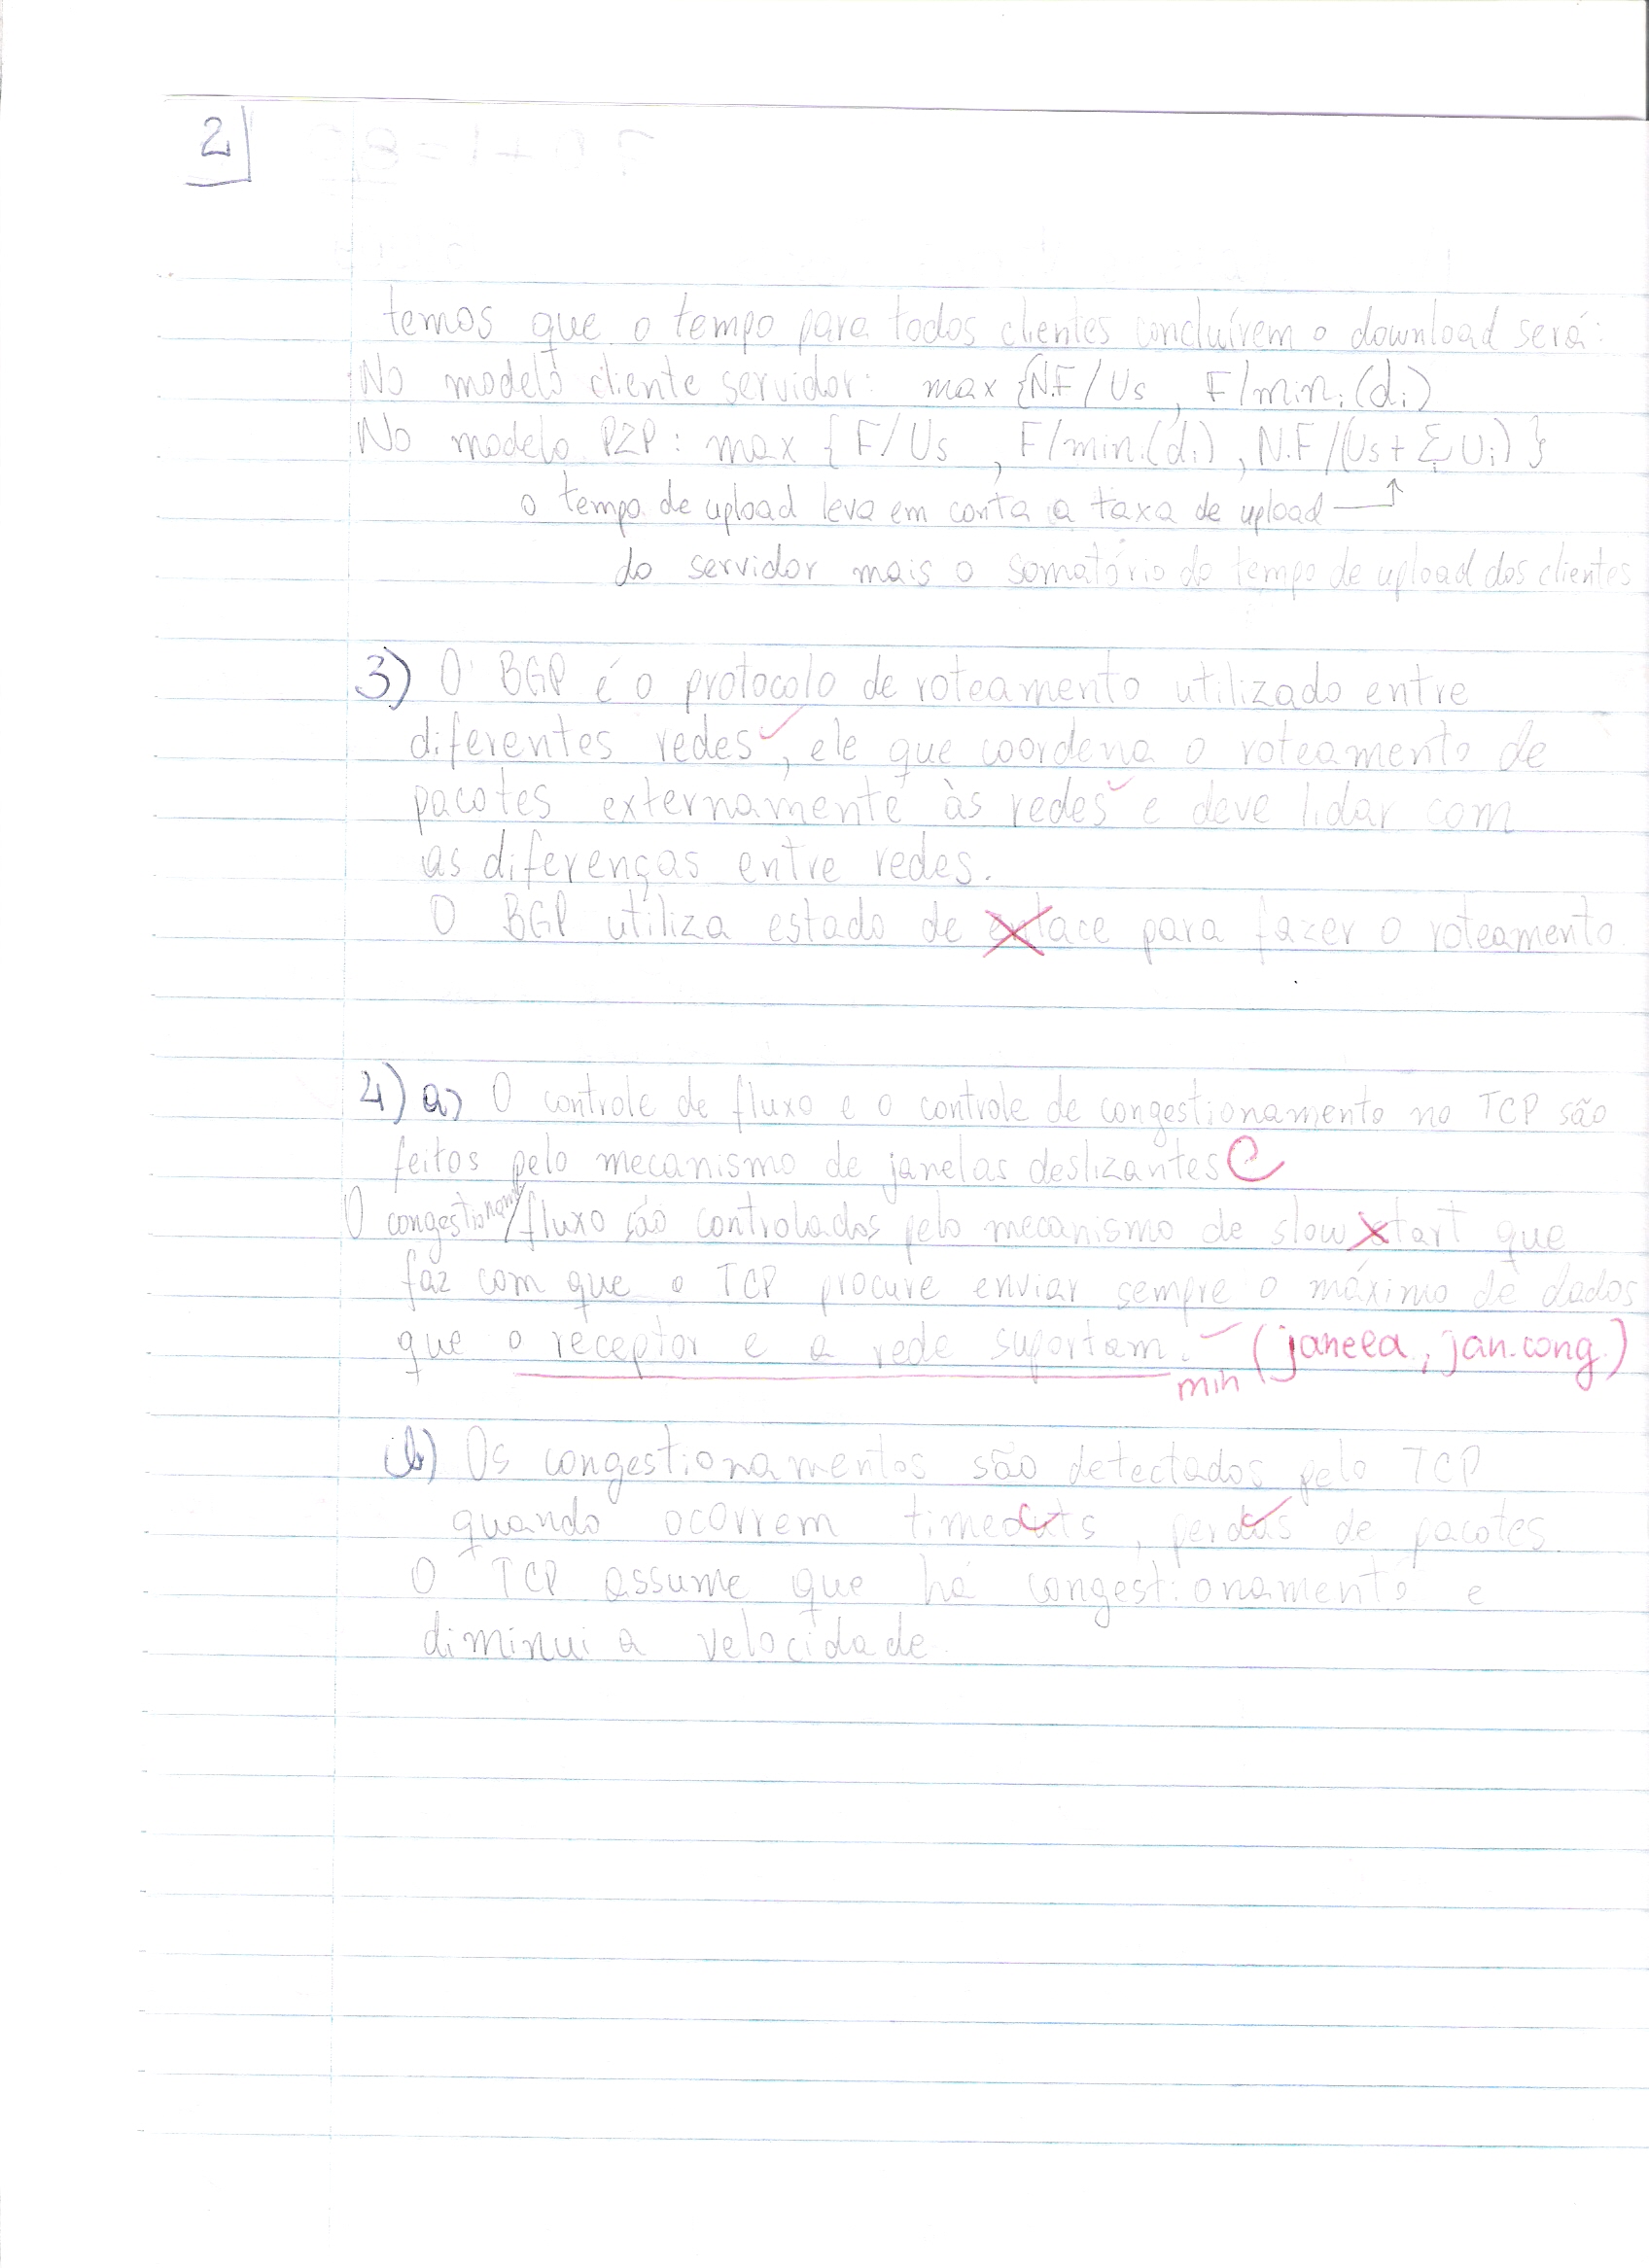 2
temos que o tempo para todos clientes concluírem o download será:
No modelo cliente servidor: max {N.F/Us , F/mini(di)
No modelo P2P: max {F/Us , F/mini(di) , N.F/(Us + Σi Ui) }
o tempo de upload leva em conta a taxa de upload
do servidor mais o somatório do tempo de upload dos clientes
3) O BGP é o protocolo de roteamento utilizado entre
diferentes redes, ele que coordena o roteamento de
pacotes externamente às redes e deve lidar com
as diferenças entre redes.
O BGP utiliza estado de enlace para fazer o roteamento.
4) a) O controle de fluxo e o controle de congestionamento no TCP são
feitos pelo mecanismo de janelas deslizantes C
O congestionam/fluxo são controlados pelo mecanismo de slow start que
faz com que o TCP procure enviar sempre o máximo de dados
que o receptor e a rede suportam. min (janela, jan.cong.)
b) Os congestionamentos são detectados pelo TCP
quando ocorrem timeouts, perdas de pacotes.
O TCP assume que há congestionamento e
diminui a velocidade.